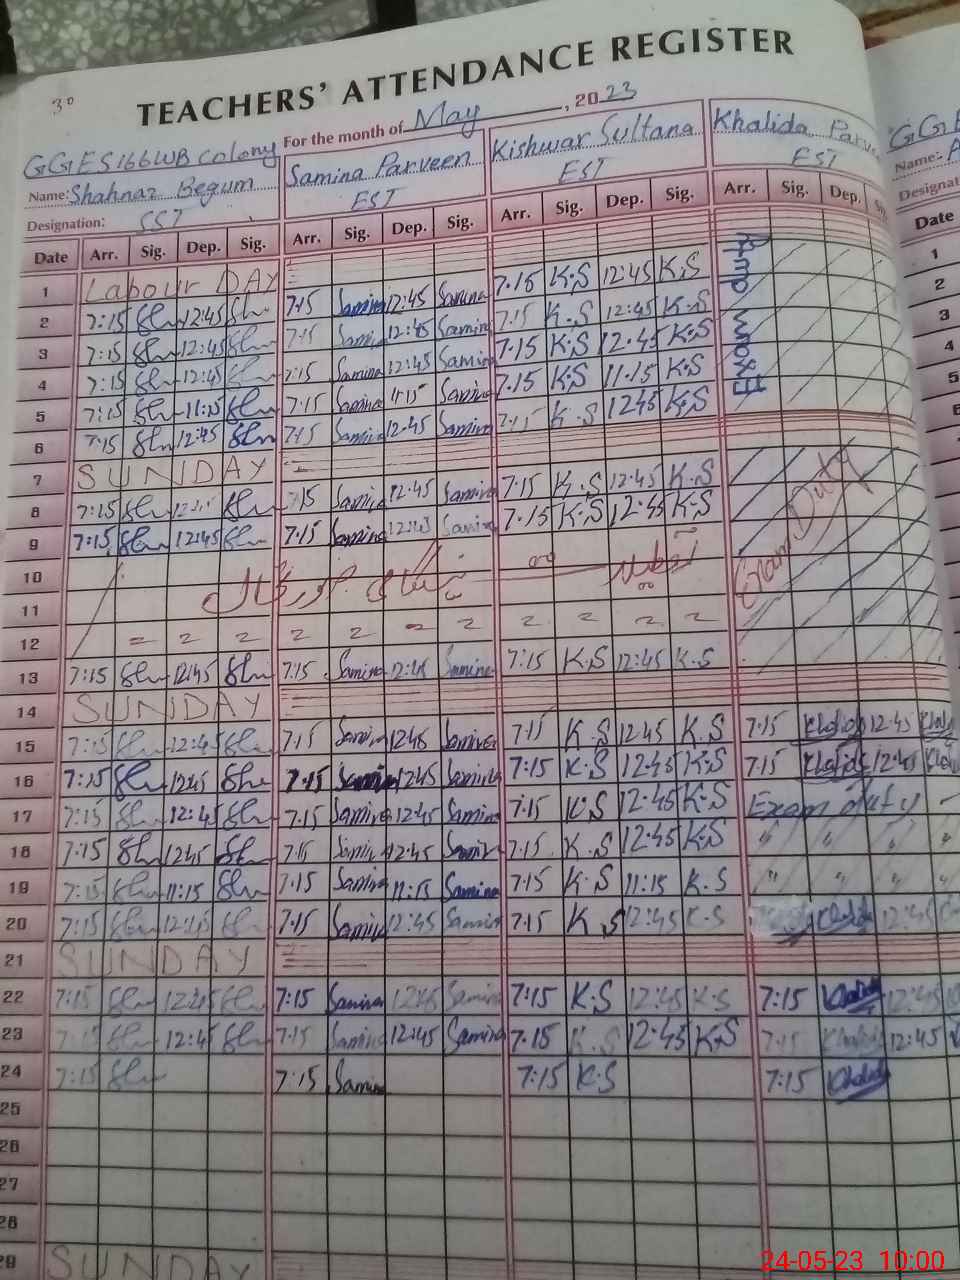 30
TEACHERS' ATTENDANCE REGISTER
For the month of May, 2023
GGES166WB colony
Name: Shahnaz Begum Samina Parveen Kishwar Sultana Khalida
Designation: SST EST EST EST
Date Arr. Sig. Dep. Sig. Arr. Sig. Dep. Sig. Arr. Sig. Dep. Sig. Arr. Sig. Dep.
1 Labour DAY
2 7:15 12:45 7:15 Samina 12:45 Samina 7:15 K.S 12:45 K.S
3 7:15 12:45 7:15 Samina 12:45 Samina 7:15 K.S 12:45 K.S
4 7:15 12:45 7:15 Samina 12:45 Samina 7:15 K.S 12:45 K.S
5 7:15 11:15 7:15 Samina 11:15 Samina 7:15 K.S 11:15 K.S
6 7:15 12:45 7:15 Samina 12:45 Samina 7:15 K.S 12:45 K.S
Exam duty
7 SUNDAY
8 7:15 7:15 Samina 12:45 Samina 7:15 K.S 12:45 K.S
9 7:15 12:45 7:15 Samina 12:45 Samina 7:15 K.S 12:45 K.S
Exam Duty
10
11
12
13 7:15 12:45 7:15 Samina 12:45 Samina 7:15 K.S 12:45 K.S
14 SUNDAY
15 7:15 12:45 7:15 Samina 12:45 Samina 7:15 K.S 12:45 K.S 7:15 Khalida 12:45
16 7:15 12:45 7:15 Samina 12:45 Samina 7:15 K.S 12:45 K.S 7:15 Khalida 12:45
17 7:15 12:45 7:15 Samina 12:45 Samina 7:15 K.S 12:45 K.S Exam duty
18 7:15 12:45 7:15 Samina 12:45 Samina 7:15 K.S 12:45 K.S " " " "
19 7:15 11:15 7:15 Samina 11:15 Samina 7:15 K.S 11:15 K.S " " " "
20 7:15 12:45 7:15 Samina 12:45 Samina 7:15 K.S 12:45 K.S Khalida 12:45
21 SUNDAY
22 7:15 12:45 7:15 Samina 12:45 Samina 7:15 K.S 12:45 K.S 7:15 Khalida 12:45
23 7:15 12:45 7:15 Samina 12:45 Samina 7:15 K.S 12:45 K.S 7:15 Khalida 12:45
24 7:15 7:15 Samina 7:15 K.S 7:15 Khalida
25
26
27
28
29 SUNDAY
Name:
Date
1
2
3
4
5
6
24-05-23 10:00